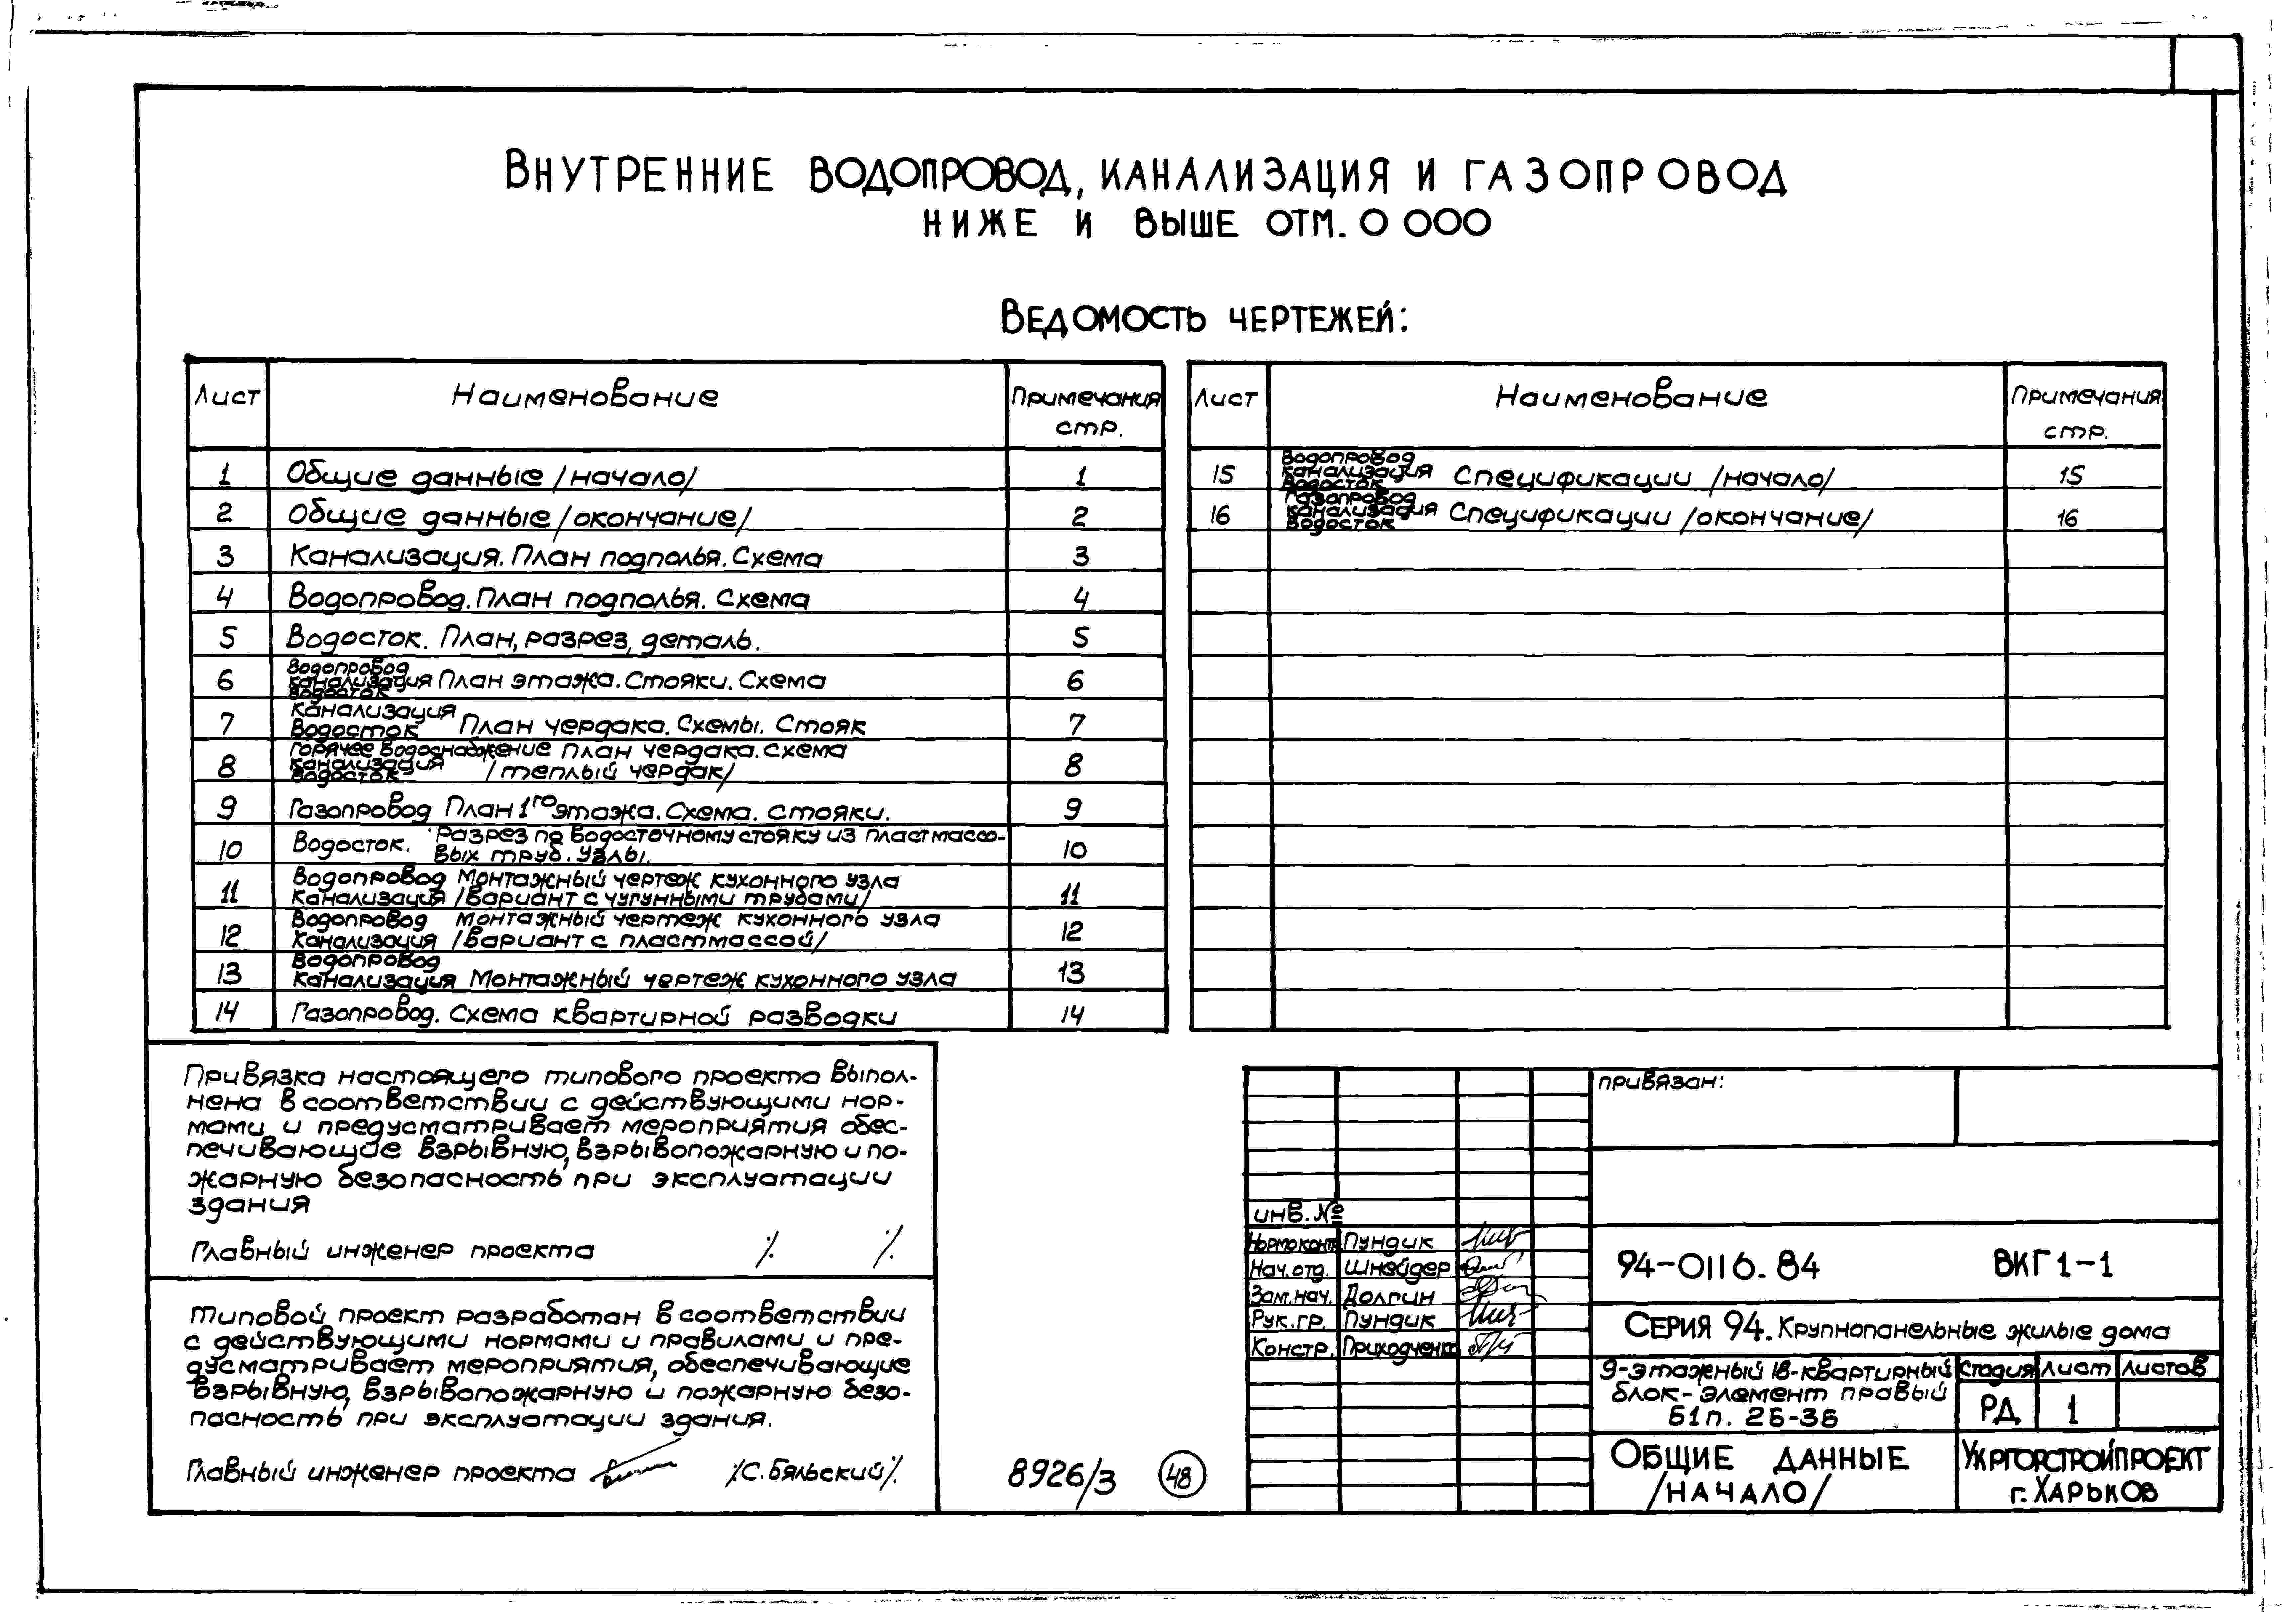 ВНУТРЕННИЕ ВОДОПРОВОД, КАНАЛИЗАЦИЯ И ГАЗОПРОВОД
НИЖЕ И ВЫШЕ ОТМ. 0 000
ВЕДОМОСТЬ ЧЕРТЕЖЕЙ:
Лист Наименование Примечания стр.
1 Общие данные /начало/ 1
2 Общие данные /окончание/ 2
3 Канализация. План подполья. Схема 3
4 Водопровод. План подполья. Схема 4
5 Водосток. План, разрез, деталь. 5
6 Водопровод канализация водосток План этажа. Стояки. Схема 6
7 Канализация Водосток План чердака. Схемы. Стояк 7
8 Горячее водоснабжение канализация водосток План чердака. Схема /теплый чердак/ 8
9 Газопровод План 1го этажа. Схема. Стояки. 9
10 Водосток. Разрез по водосточному стояку из пластмассо-
вых труб. Узлы. 10
11 Водопровод Канализация Монтажный чертеж кухонного узла /Вариант с чугунными трубами/ 11
12 Водопровод Канализация Монтажный чертеж кухонного узла /Вариант с пластмассой/ 12
13 Водопровод Канализация Монтажный чертеж кухонного узла 13
14 Газопровод. Схема квартирной разводки 14
Лист Наименование Примечания стр.
15 Водопровод канализация водосток Спецификации /начало/ 15
16 Газопровод канализация водосток Спецификации /окончание/ 16
Привязка настоящего типового проекта выпол-
нена в соответствии с действующими нор-
мами и предусматривает мероприятия обес-
печивающие взрывную, взрывопожарную и по-
жарную безопасность при эксплуатации
здания
Главный инженер проекта /. /.
Типовой проект разработан в соответствии
с действующими нормами и правилами и пре-
дусматривает мероприятия, обеспечивающие
взрывную, взрывопожарную и пожарную безо-
пасность при эксплуатации здания.
Главный инженер проекта /С. Бяльский/
8926/3 48
привязан:
инв. №
Нормоконт. Пундик
Нач. отд. Шнейдер
Зам. нач. Долгин
Рук. гр. Пундик
Констр. Приходченко
94-0116.84 ВКГ1-1
СЕРИЯ 94. Крупнопанельные жилые дома
9-этажный 18-квартирный
блок-элемент правый
Б1п. 2Б-3Б
Стадия Лист Листов
РД 1
ОБЩИЕ ДАННЫЕ
/НАЧАЛО/
УКРГОРСТРОЙПРОЕКТ
г. ХАРЬКОВ